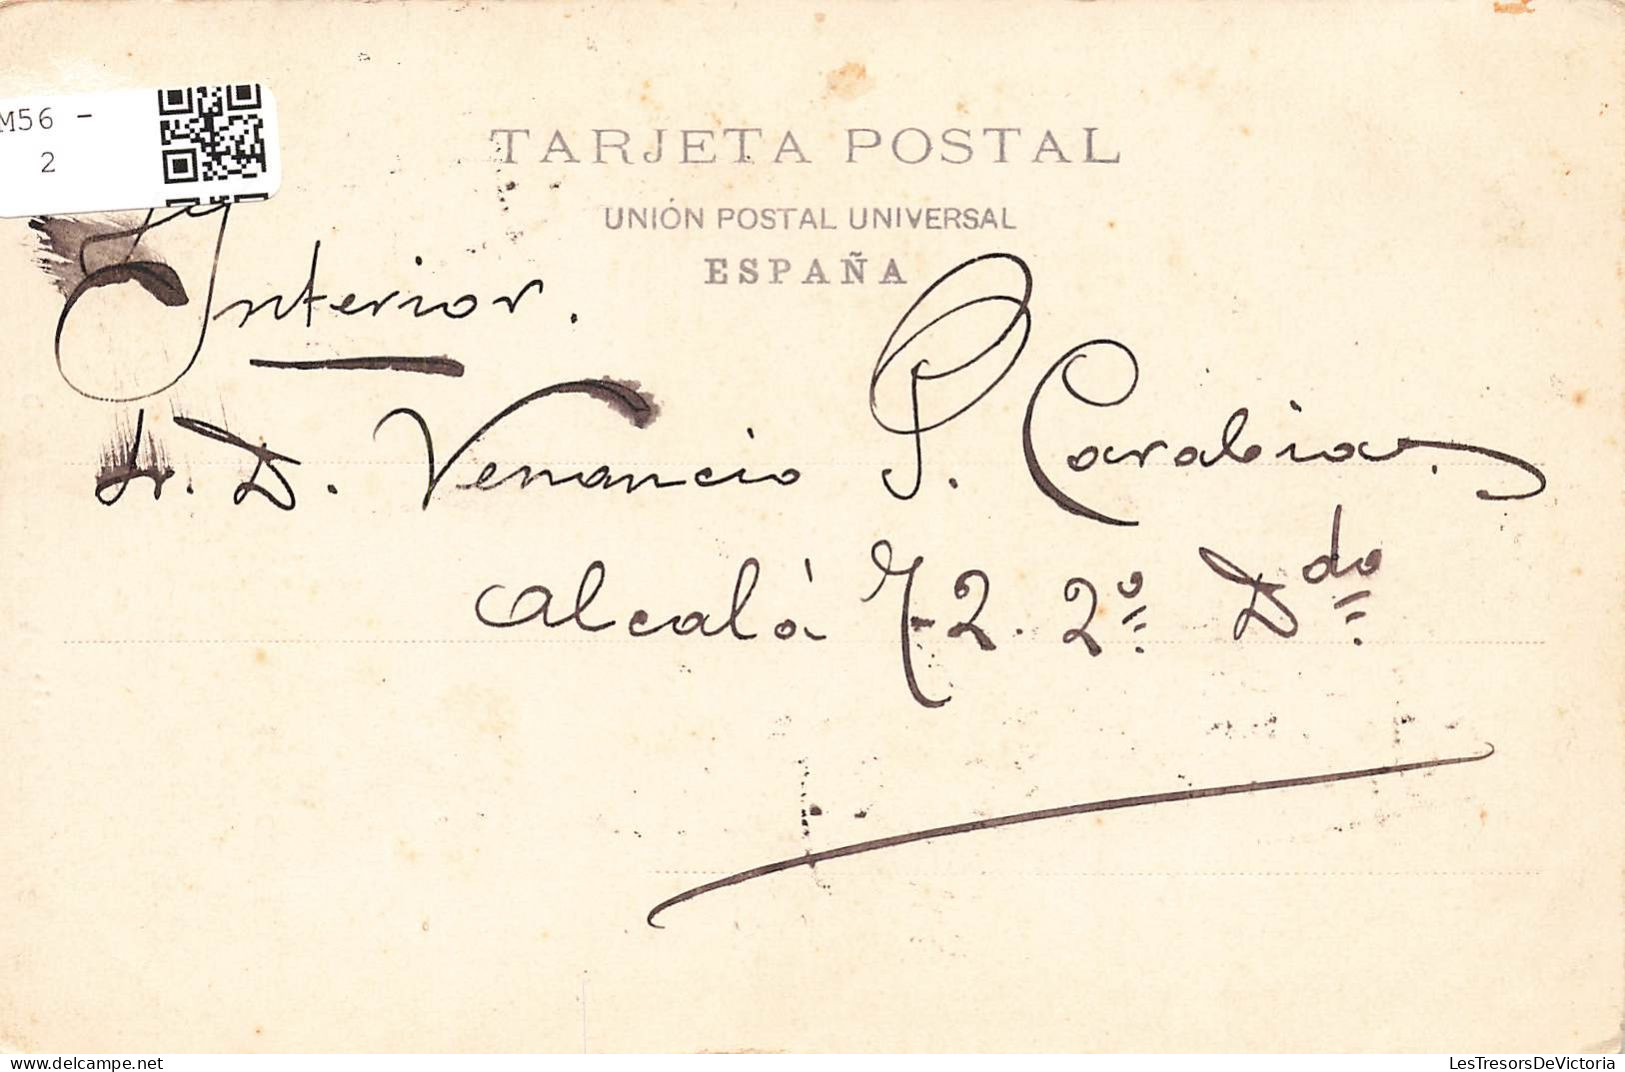 M56 -
2
TARJETA POSTAL
UNIÓN POSTAL UNIVERSAL
ESPAÑA
Interior.
Sr. D. Venancio P. Carabias.
Alcalá 72. 2º Ddo
LesTresorsDeVictoria